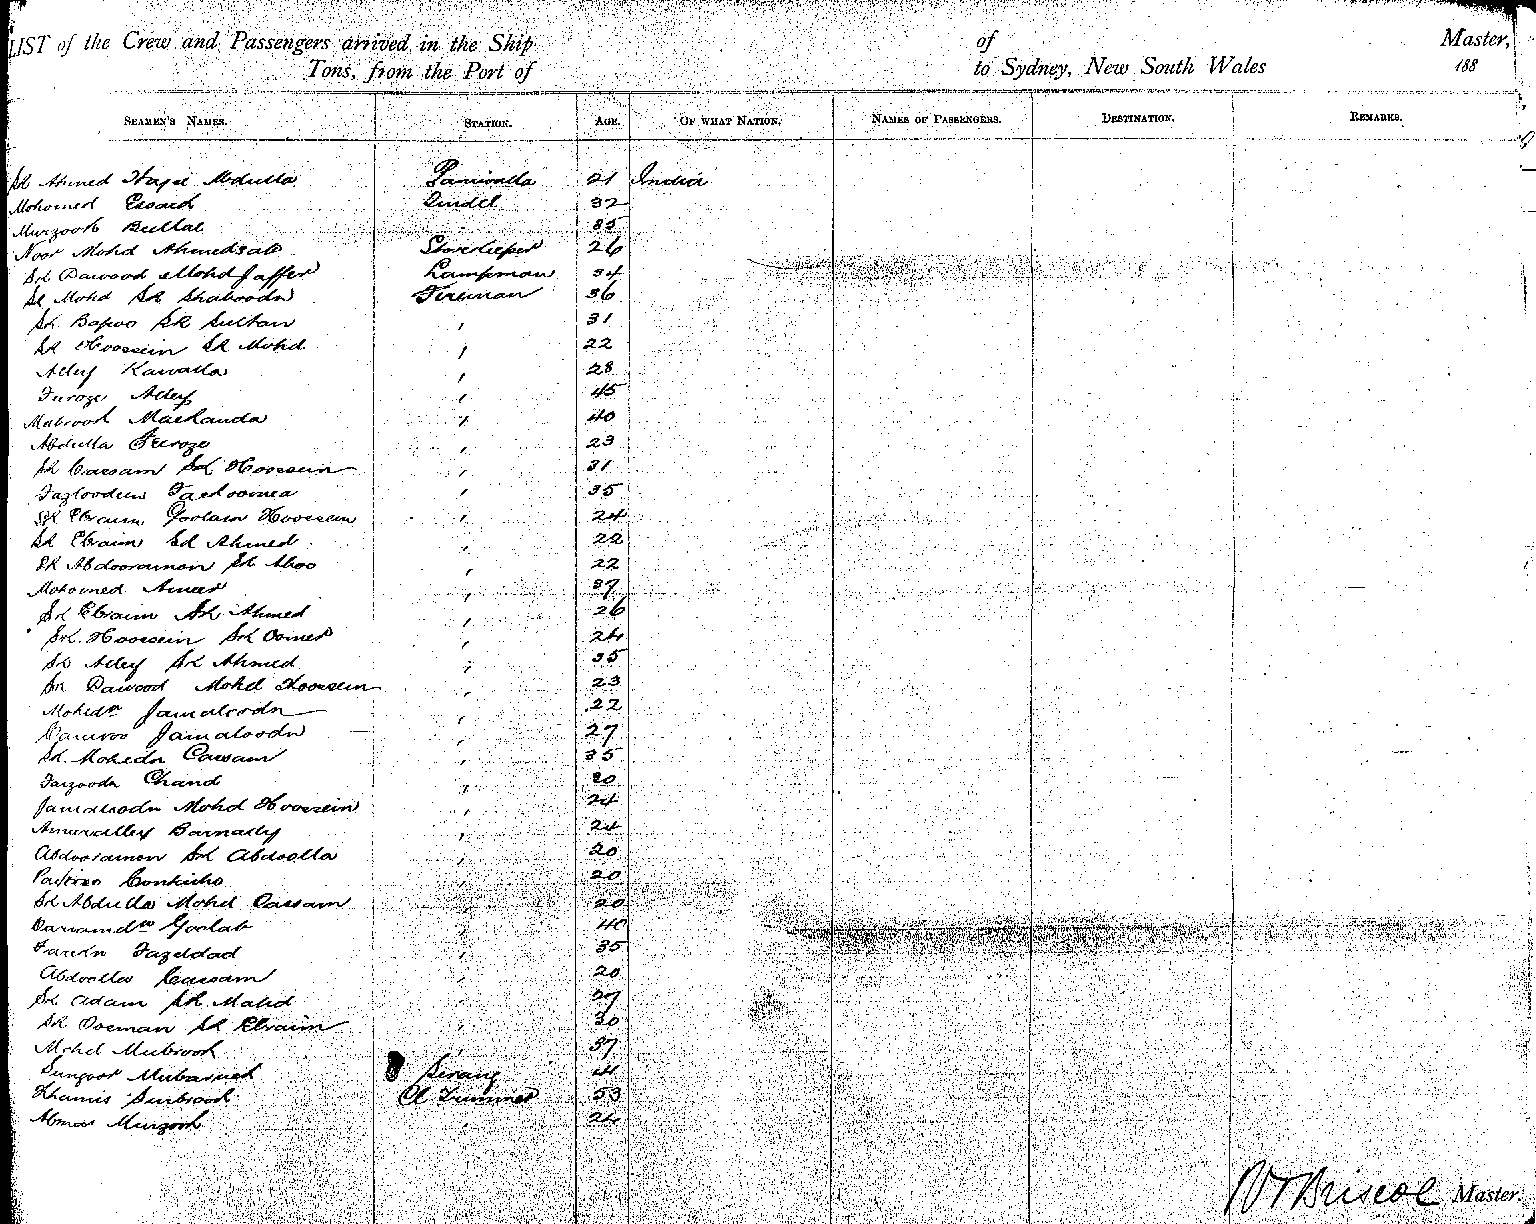 LIST of the Crew and Passengers arrived in the Ship of Master,
Tons, from the Port of to Sydney, New South Wales 188
SEAMEN'S NAMES. STATION. AGE. OF WHAT NATION. NAMES OF PASSENGERS. DESTINATION. REMARKS.
Sk Ahmed Hajee Abdulla Paniwalla 21 India
Mohomed Essack 32
Murzook Bullal 35
Noor Mohd Ahmedsab Storekeeper 26
Sk Dawood Mohd Jaffer Lampman 34
Sk Mohd Sk Shaboodn Fireman 36
Sk Bapoo Sk Sultan " 31
Sk Hoossein Sk Mohd " 22
Alley Kawalla " 28
Furoze Alley " 45
Mabrook Mackanda " 40
Abdulla Feroze " 23
Sk Cassam Sk Hoossein " 31
Fazloodeen " 35
Sk Ebraim Goolam Hoossein " 24
Sk Ebraim Sd Ahmed " 22
Sk Abdooramon Sk Aboo " 22
Mohomed Ameer " 37
Sk Ebraim Sk Ahmed " 26
Sk Hoossein Sk Oomer " 24
Sk Alley Sk Ahmed " 35
Sk Dawood Mohd Hoossein " 23
Mohedn Jamaloodn " 22
Jamaloodn " 27
Sk Mohedn Cassam " 35
Faizoodn Chand " 30
Jamaloodn Mohd Hoossein " 24
Ameeralley Barnally " 24
Abdooramon Sk Abdoolla " 20
" 20
Sk Abdulla Mohd Cassam " 20
Goolab " 40
Fazeldad " 35
Abdoolla Cassam " 20
Sk Adam Sk Mahd " 27
Sk Ooseman Sk Ebraim " 30
Mohd Mubrook 37
Sungoor Mubaruck Serang 41
Khamis Surbrook Cl Trimmer 53
Almas Murzook " 24
Briscoe Master.